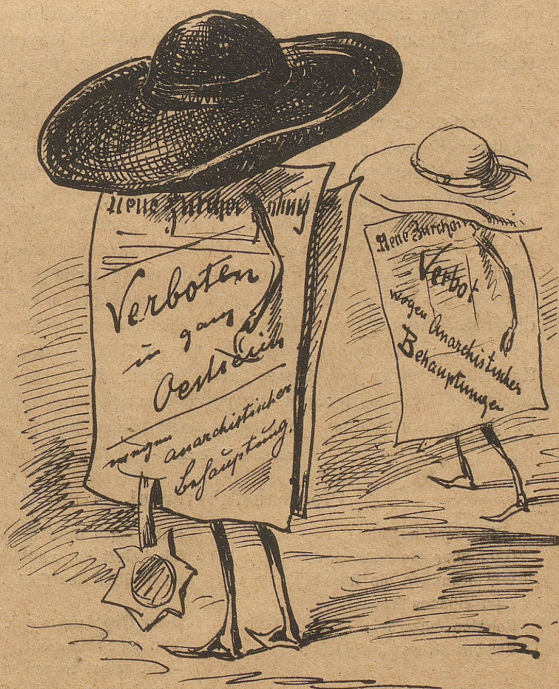 Neue Zürcher Zeitung
Verboten
in ganz
Oestreich
wegen
anarchistischer
Behauptung.
Neue Zürcher
Verbot
wegen Anarchistischer
Behauptungen